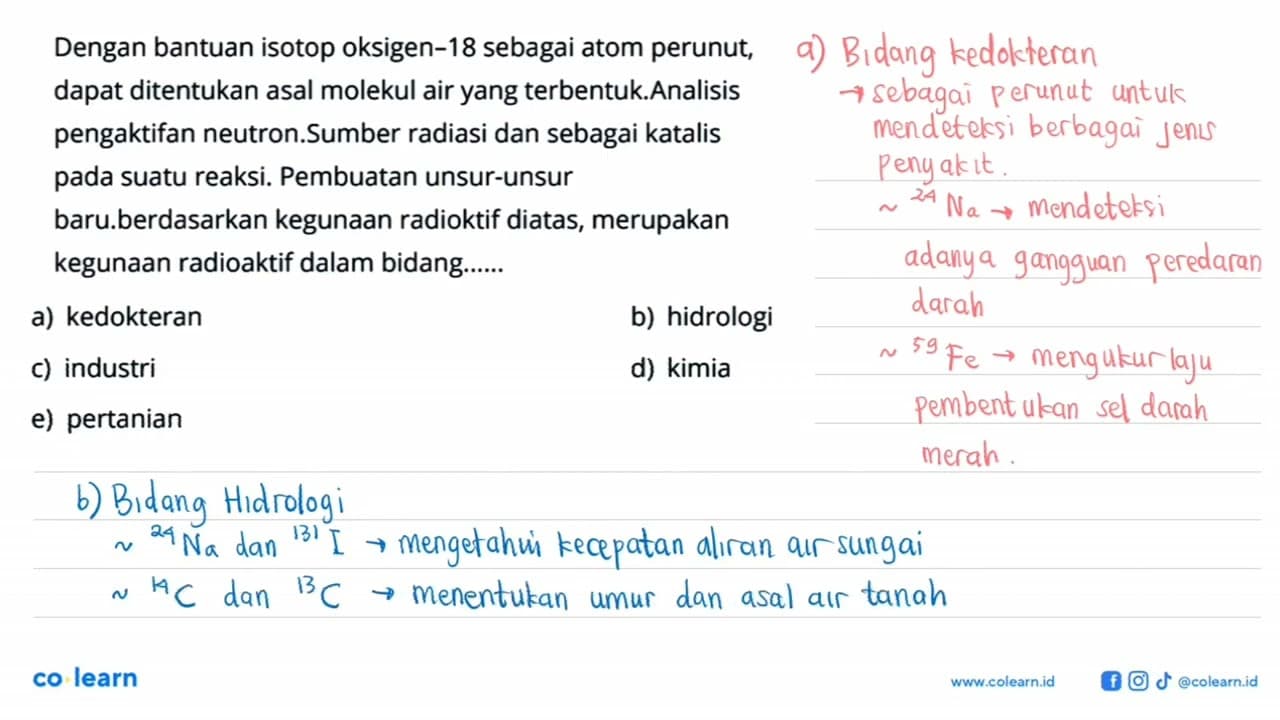 Dengan bantuan isotop oksigen–18 sebagai atom perunut,
dapat ditentukan asal molekul air yang terbentuk.Analisis
pengaktifan neutron.Sumber radiasi dan sebagai katalis
pada suatu reaksi. Pembuatan unsur-unsur
baru.berdasarkan kegunaan radioktif diatas, merupakan
kegunaan radioaktif dalam bidang......
a) kedokteran
b) hidrologi
c) industri
d) kimia
e) pertanian
a) Bidang kedokteran
→ sebagai perunut untuk
mendeteksi berbagai jenis
penyakit.
~ ²⁴Na → mendeteksi
adanya gangguan peredaran
darah
~ ⁵⁹Fe → mengukur laju
pembentukan sel darah
merah.
b) Bidang Hidrologi
~ ²⁴Na dan ¹³¹I → mengetahui kecepatan aliran air sungai
~ ¹⁴C dan ¹³C → menentukan umur dan asal air tanah
co learn
www.colearn.id
@colearn.id